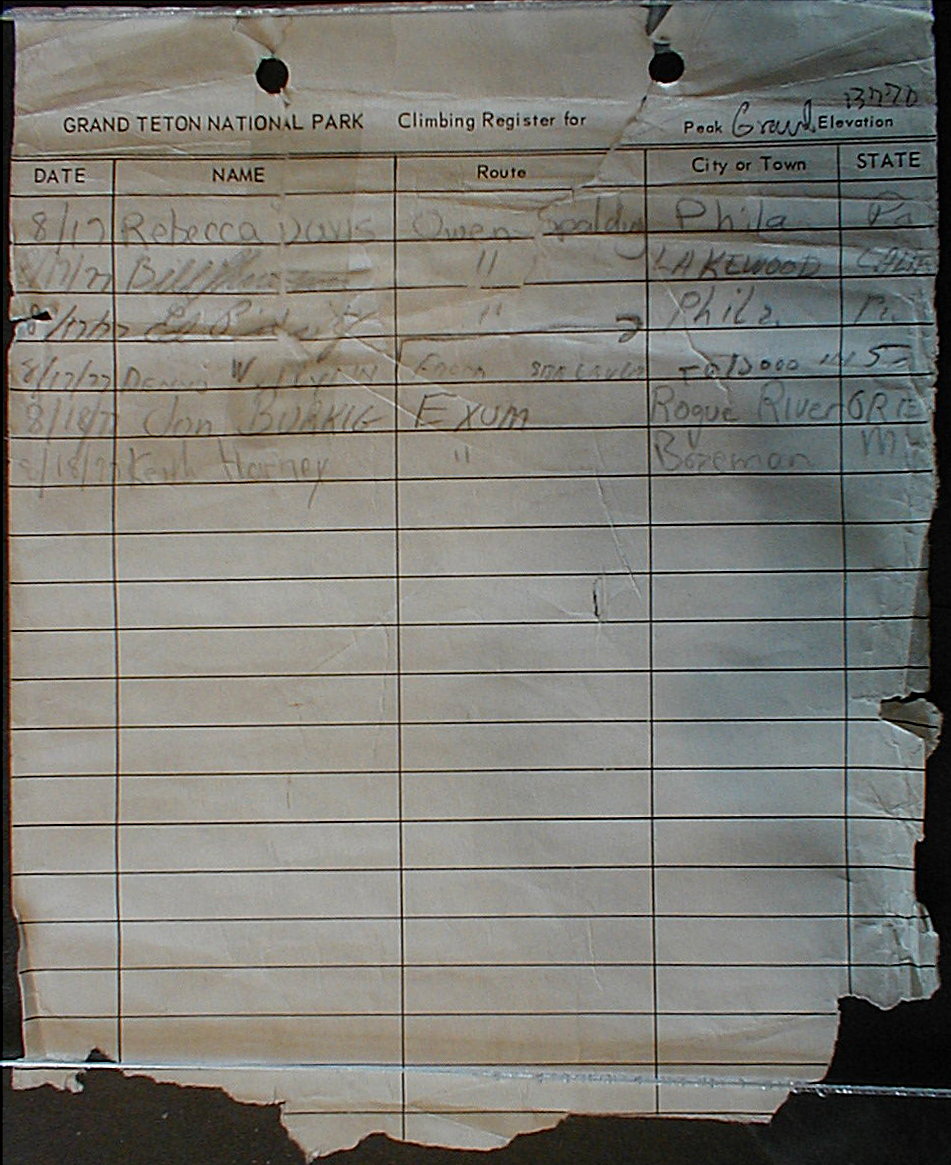 13770
GRAND TETON NATIONAL PARK Climbing Register for Peak Grand Elevation
DATE NAME Route City or Town STATE
8/17 Rebecca Davis Owen Spalding Phila Pa
8/17/77 Bill " LAKEWOOD CALIF
8/17/77 Ed " Phila. Pa
8/17/77 Dennis W. From SEA LEVEL TO 13000 IN 5
8/18/77 Jon BURKIG EXUM Rogue River ORE
8/18/77 Keith Harney " Bozeman